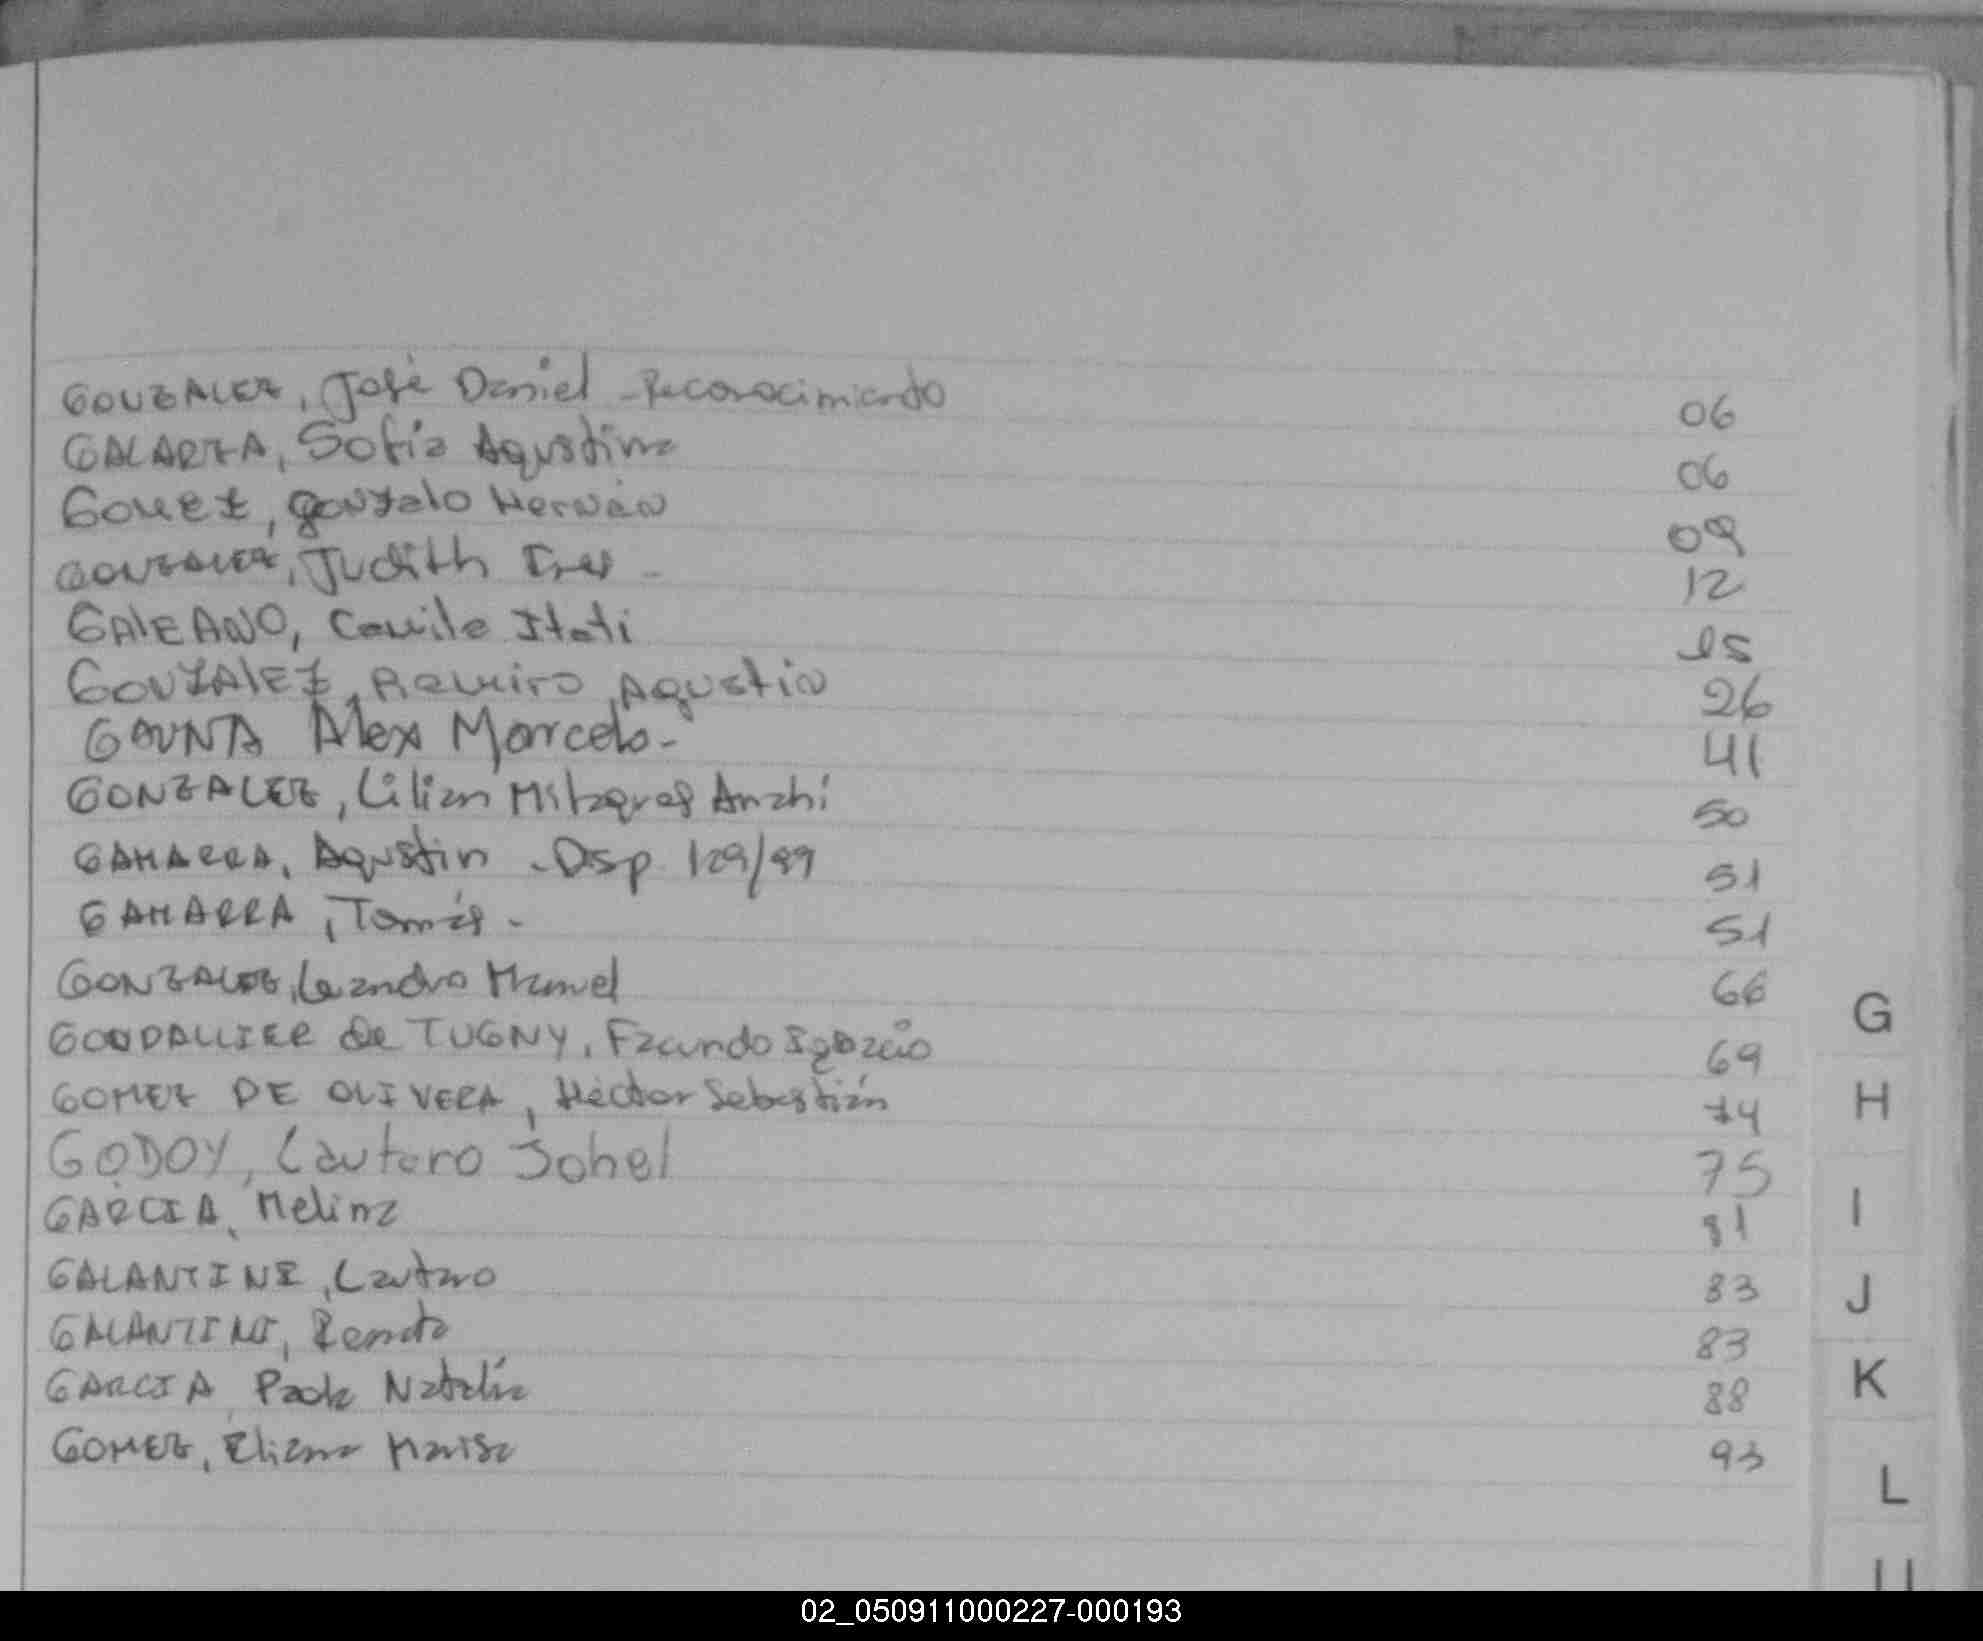 GONZALEZ, José Daniel - Reconocimiento 06
GALARZA, Sofía Agustina 06
GOMEZ, Gonzalo Hernán 09
GONZALEZ, Judith Ines - 12
GALEANO, Camila Itati 15
GONZALEZ, Ramiro Agustin 26
GAUNA Alex Marcelo - 41
GONZALEZ, Lilian Milagros Anahi 50
GAMARRA, Agustin - Disp 129/99 51
GAMARRA, Tomás - 51
GONZALEZ, Leandro Manuel 66
GOUDALLIER de TUGNY, Facundo Ignacio 69
GOMEZ DE OLIVERA, Héctor Sebastián 74
GODOY, Lautaro Johel 75
GARCIA, Melina 81
GALANTINI, Lautaro 83
GALANTINI, Renata 83
GARCIA, Paola Natalia 88
GOMEZ, Eliana Marisa 93
G
H
I
J
K
L
02_050911000227-000193